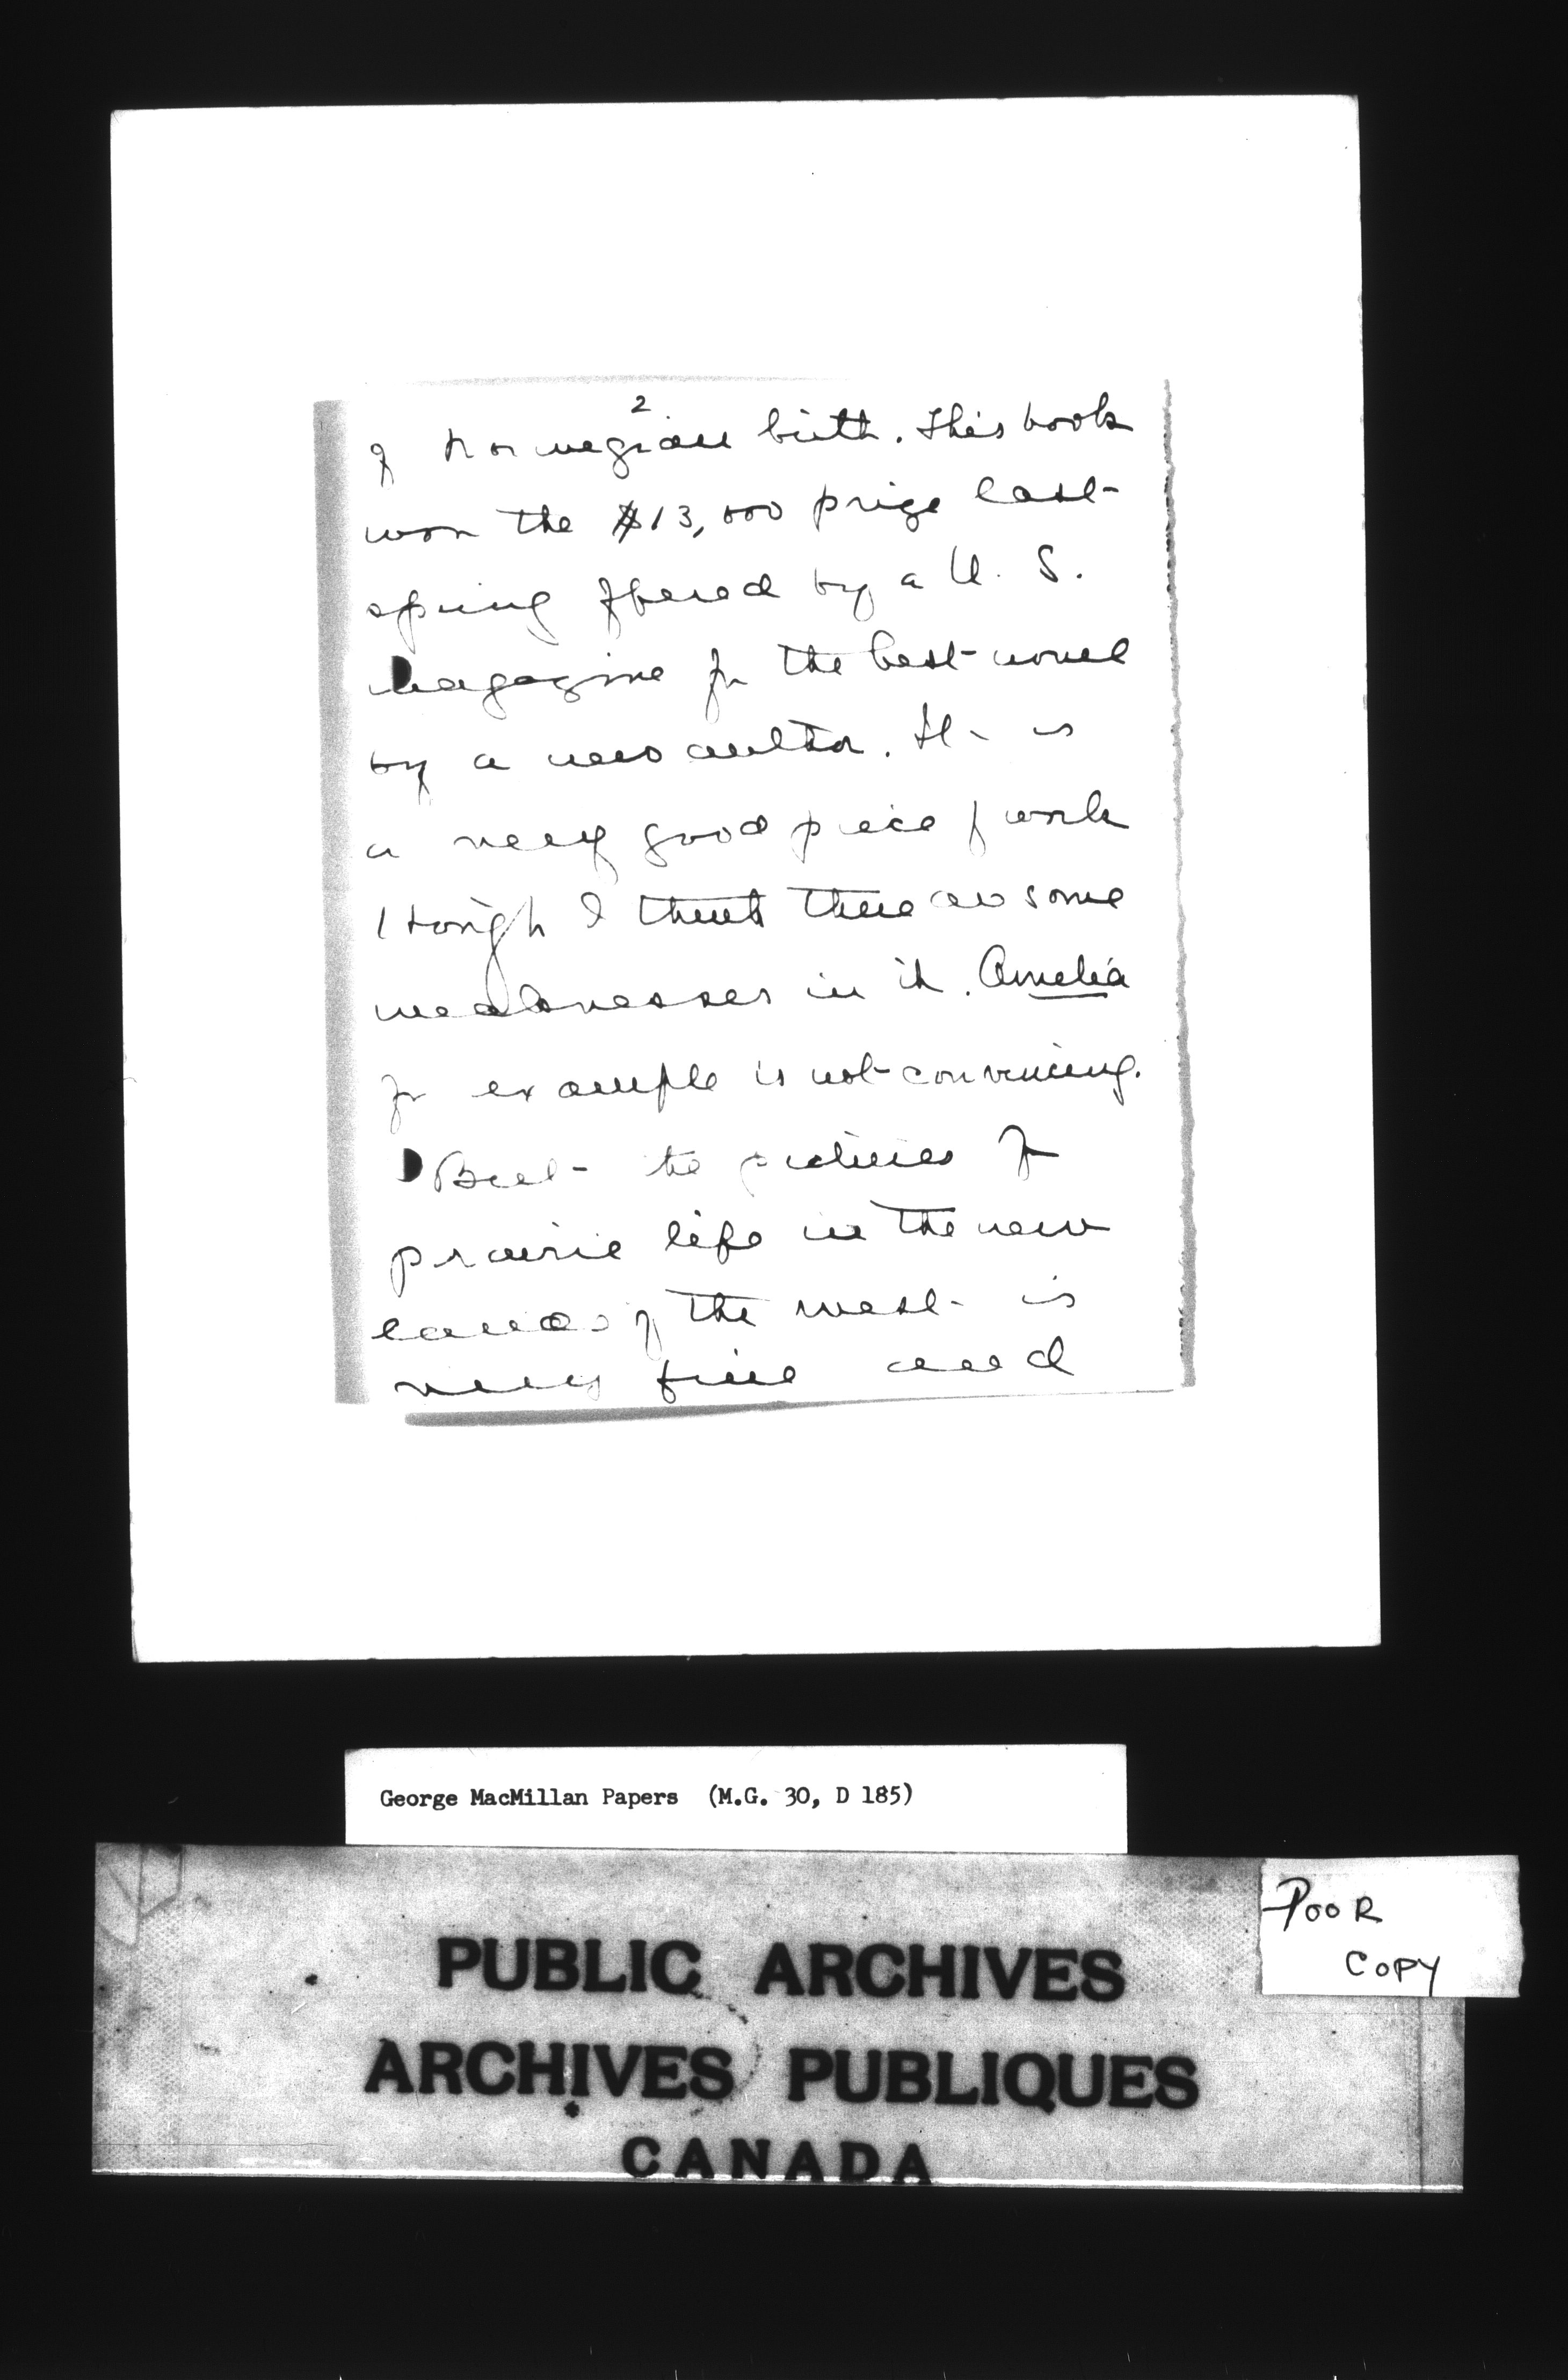 2.
of Norwegian birth. This book
won the $13,000 prize last
spring offered by a U. S.
magazine for the best novel
by a new author. It is
a very good piece of work
though I think there are some
weaknesses in it. Amelia
for example is not convincing.
But the pictures of
prairie life in the new
lands of the west is
very fine and
George MacMillan Papers (M.G. 30, D 185)
POOR
COPY
PUBLIC ARCHIVES
ARCHIVES PUBLIQUES
CANADA